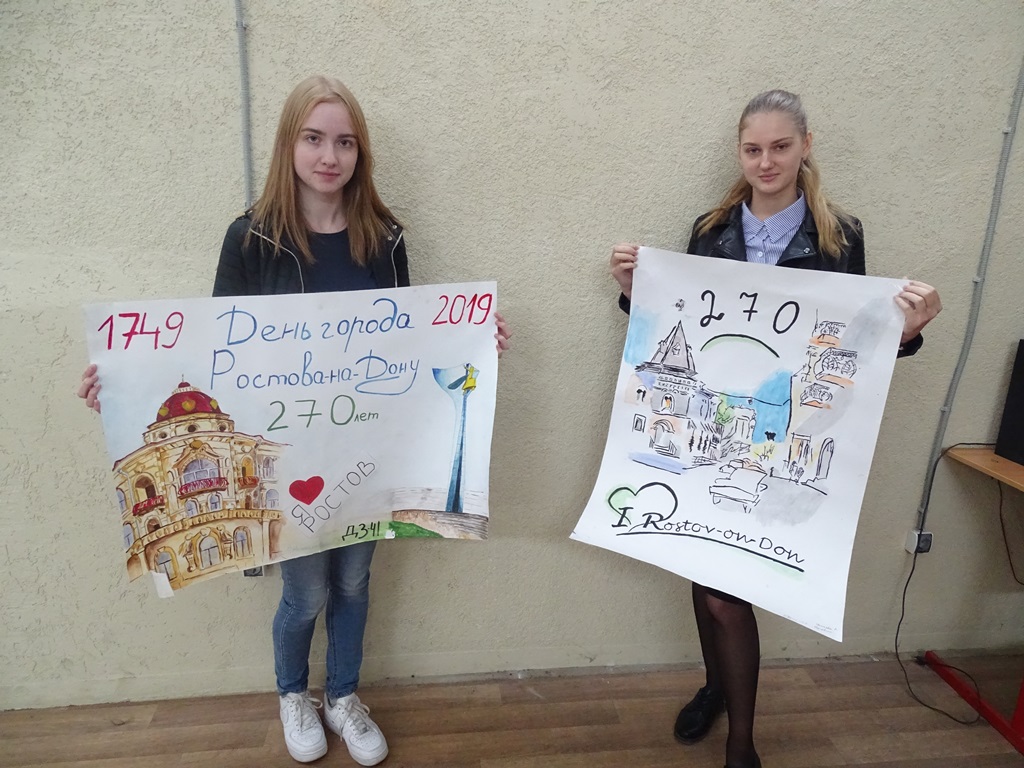 1749 День города 2019
Ростова-на-Дону
270 лет
Я ❤ РОСТОВ
ДЗ41
270
I Rostov-on-Don